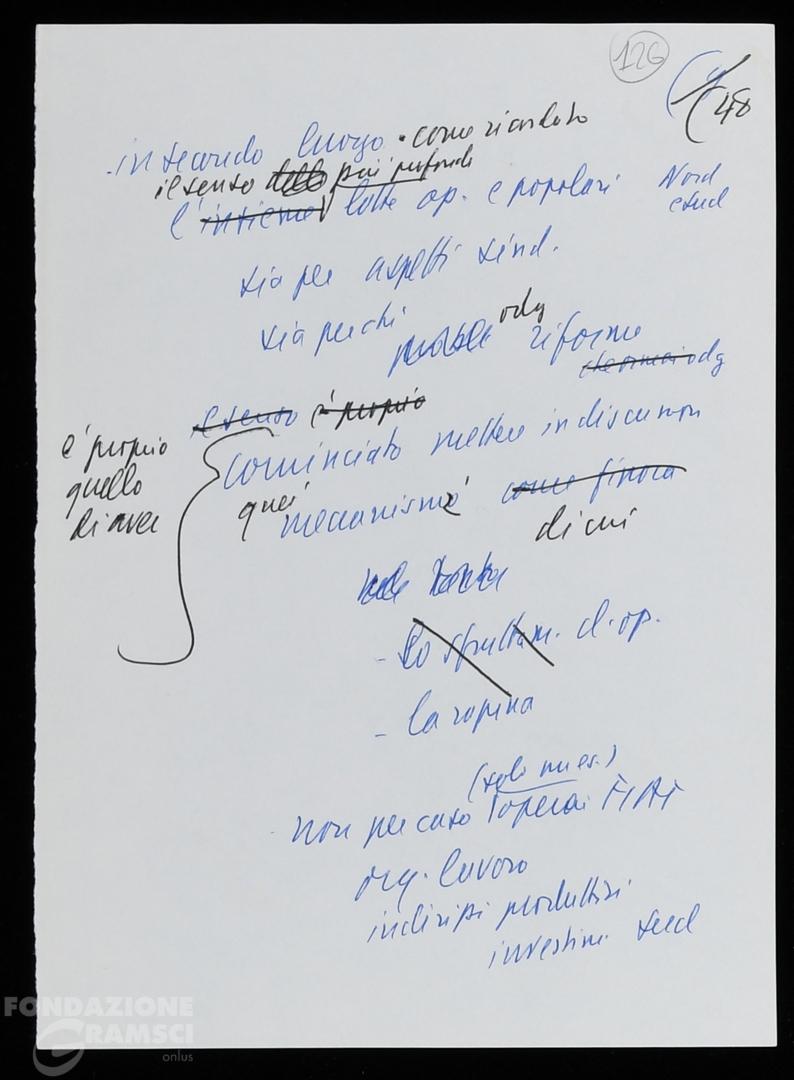 126
48
in secondo luogo · come ricordato
il senso dello più profondo
l'insieme lotte op. e popolari Nord
e sud
sia per aspetti sind.
sia perché
odg
riforme
che ormai odg
il senso è proprio
è proprio
quello
di aver
cominciato mettere in discussion
quei meccanismi come finora
di cui
- lo sfruttam. d. op.
- la rapina
(solo un es.)
non per caso operai FIAT
org. lavoro
indirizzi produttivi
investim. sud
FONDAZIONE
GRAMSCI
onlus